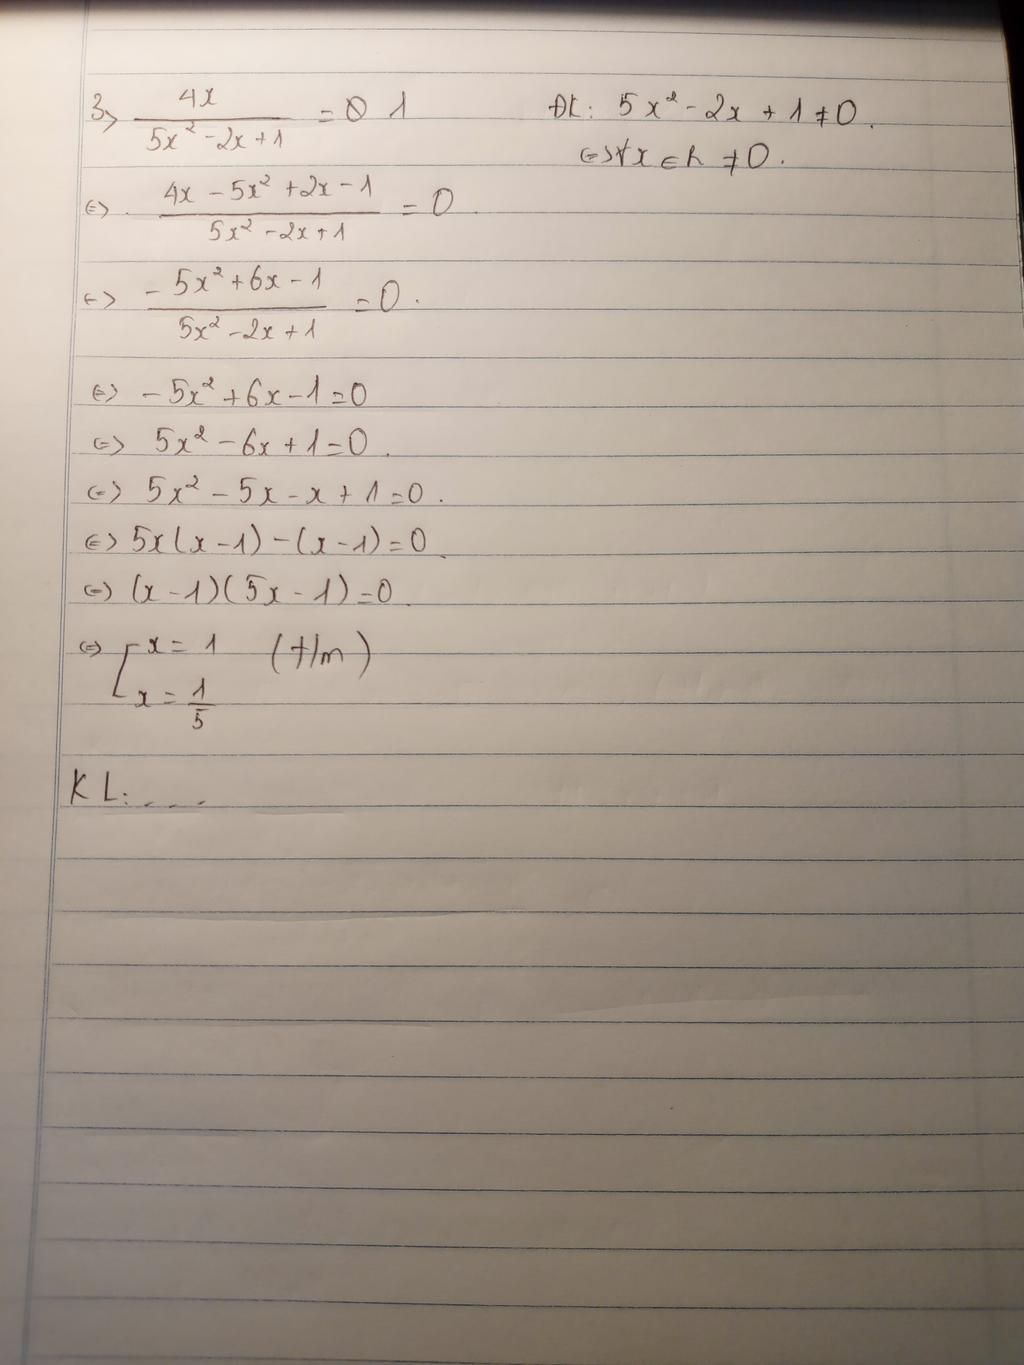 3> 4x / (5x² - 2x + 1) = 0 1
ĐK: 5x² - 2x + 1 ≠ 0.
<=> ∀x ∈ h ≠ 0.
<=> (4x - 5x² + 2x - 1) / (5x² - 2x + 1) = 0
<=> (-5x² + 6x - 1) / (5x² - 2x + 1) = 0.
<=> -5x² + 6x - 1 = 0
<=> 5x² - 6x + 1 = 0.
<=> 5x² - 5x - x + 1 = 0.
<=> 5x(x - 1) - (x - 1) = 0
<=> (x - 1)(5x - 1) = 0
<=> [ x = 1 (t/m)
x = 1/5
KL: ...